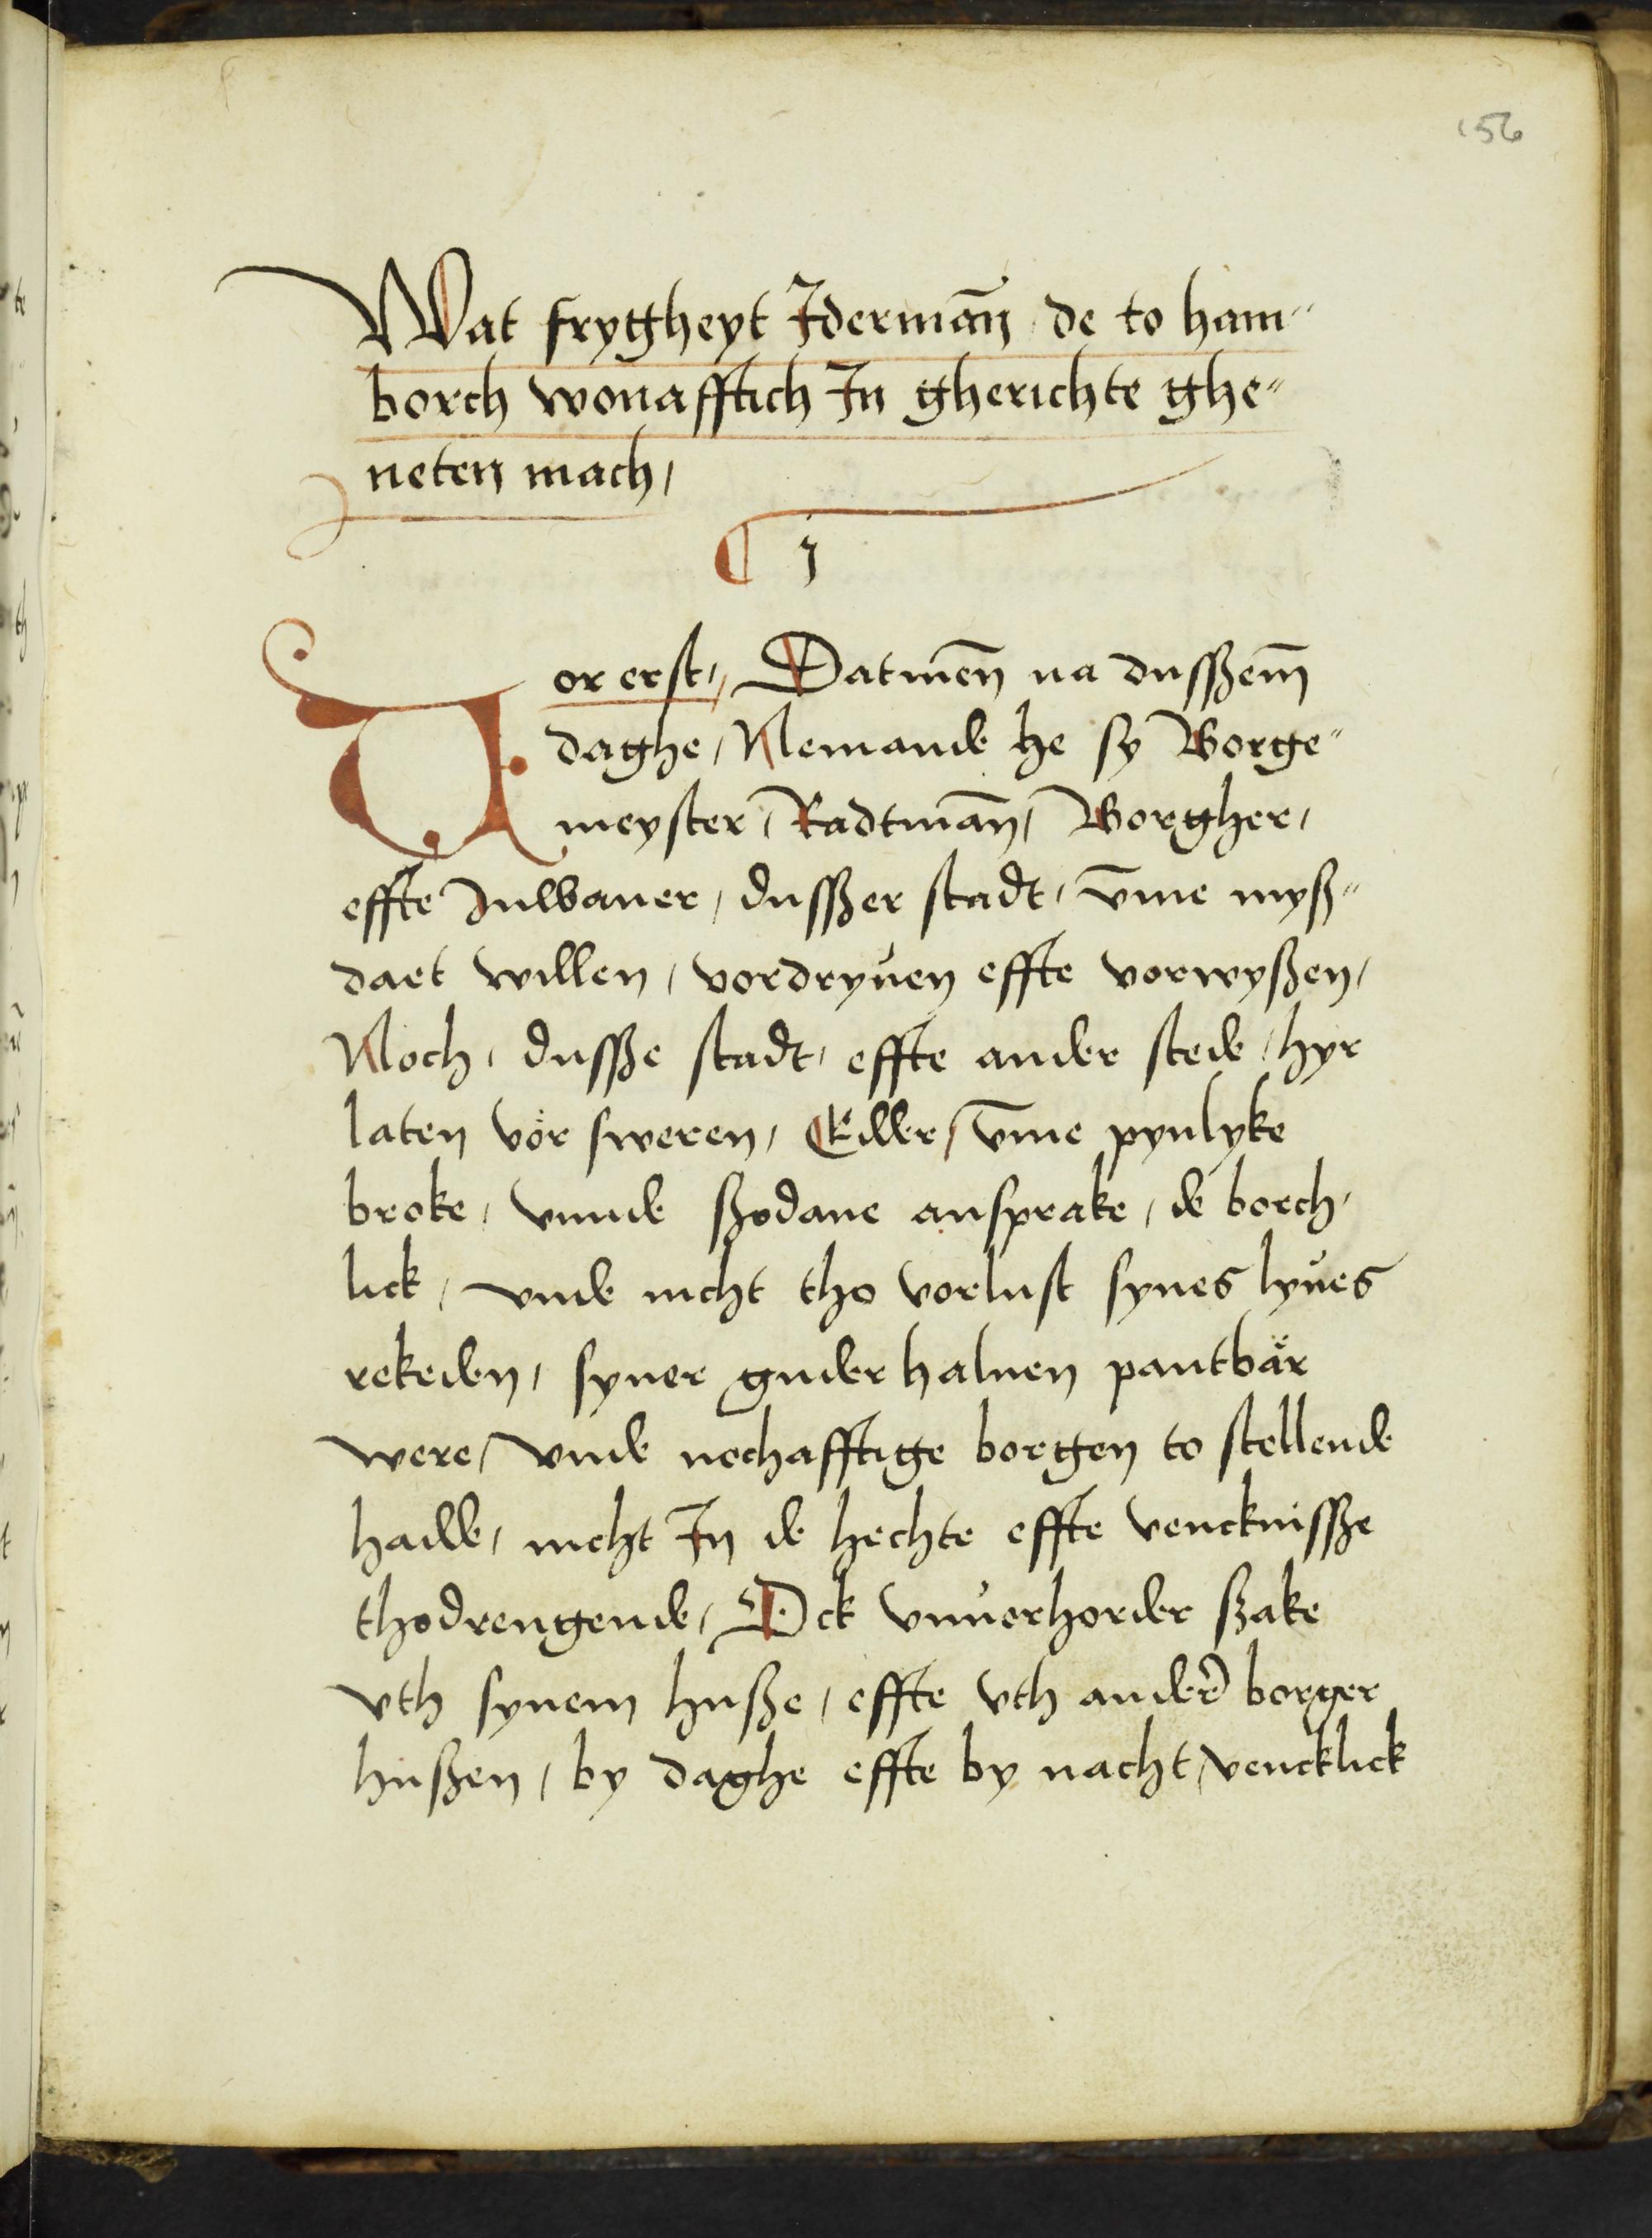 156
Wat frygheyt Idermān de to ham"
borch wonafftich In gherichte ghe"
neten mach,
¶ j
Uor erst, Datmēn na dussßem̄
daghe, Nemande he sy Borge"
meyster, Radtmān, Borgher,
effte Inwaner, dussßer stadt, v̄me myß"
daet willen, vordryuen effte vorwyßen,
Noch, dussße stadt, effte ander stede, hyr
laten vör sweren, Edder, v̄me pynlyke
broke, vnnde ßodane ansprake, de borch,
lick, vnde nicht tho vorlust synes lyues
rekeden, syner guder haluen pantbär
were, vnde nochafftige borgen to stellende
hadde, nicht In de hechte effte vencknissße
thodrengende, Ock vnuorhorder ßake
vth synem huße, effte vth ander̄ borger
hußen, by daghe effte by nacht, vencklick